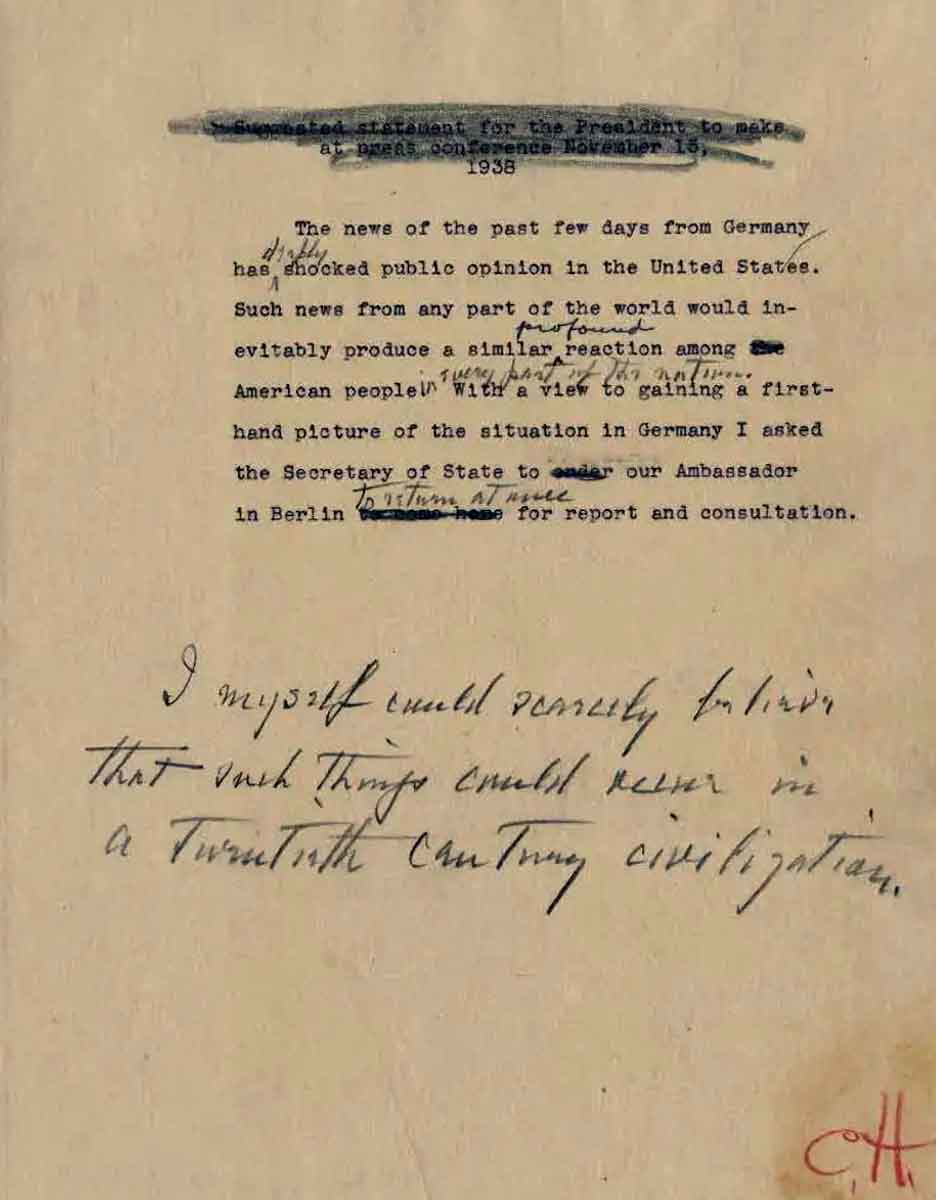 Suggested statement for the President to make
at press conference November 15,
1938
The news of the past few days from Germany
deeply
has shocked public opinion in the United States.
Such news from any part of the world would in-
profound
evitably produce a similar reaction among the
in every part of the nation.
American people. With a view to gaining a first-
hand picture of the situation in Germany I asked
the Secretary of State to order our Ambassador
to return at once
in Berlin to come home for report and consultation.
I myself could scarcely believe
that such things could occur in
a twentieth century civilization.
C.H.